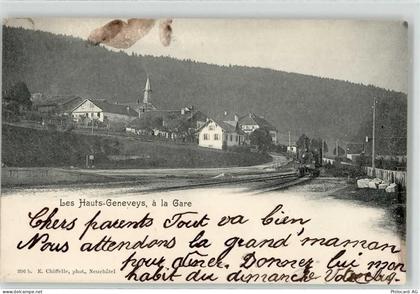 Les Hauts-Geneveys, à la Gare
Chers parents Tout va bien
Nous attendons la grand'maman
pour dîner. Donnez lui mon
habit du dimanche Votre
396 b. E. Chiffelle, phot., Neuchâtel
www.ansichtskartenhandel.com